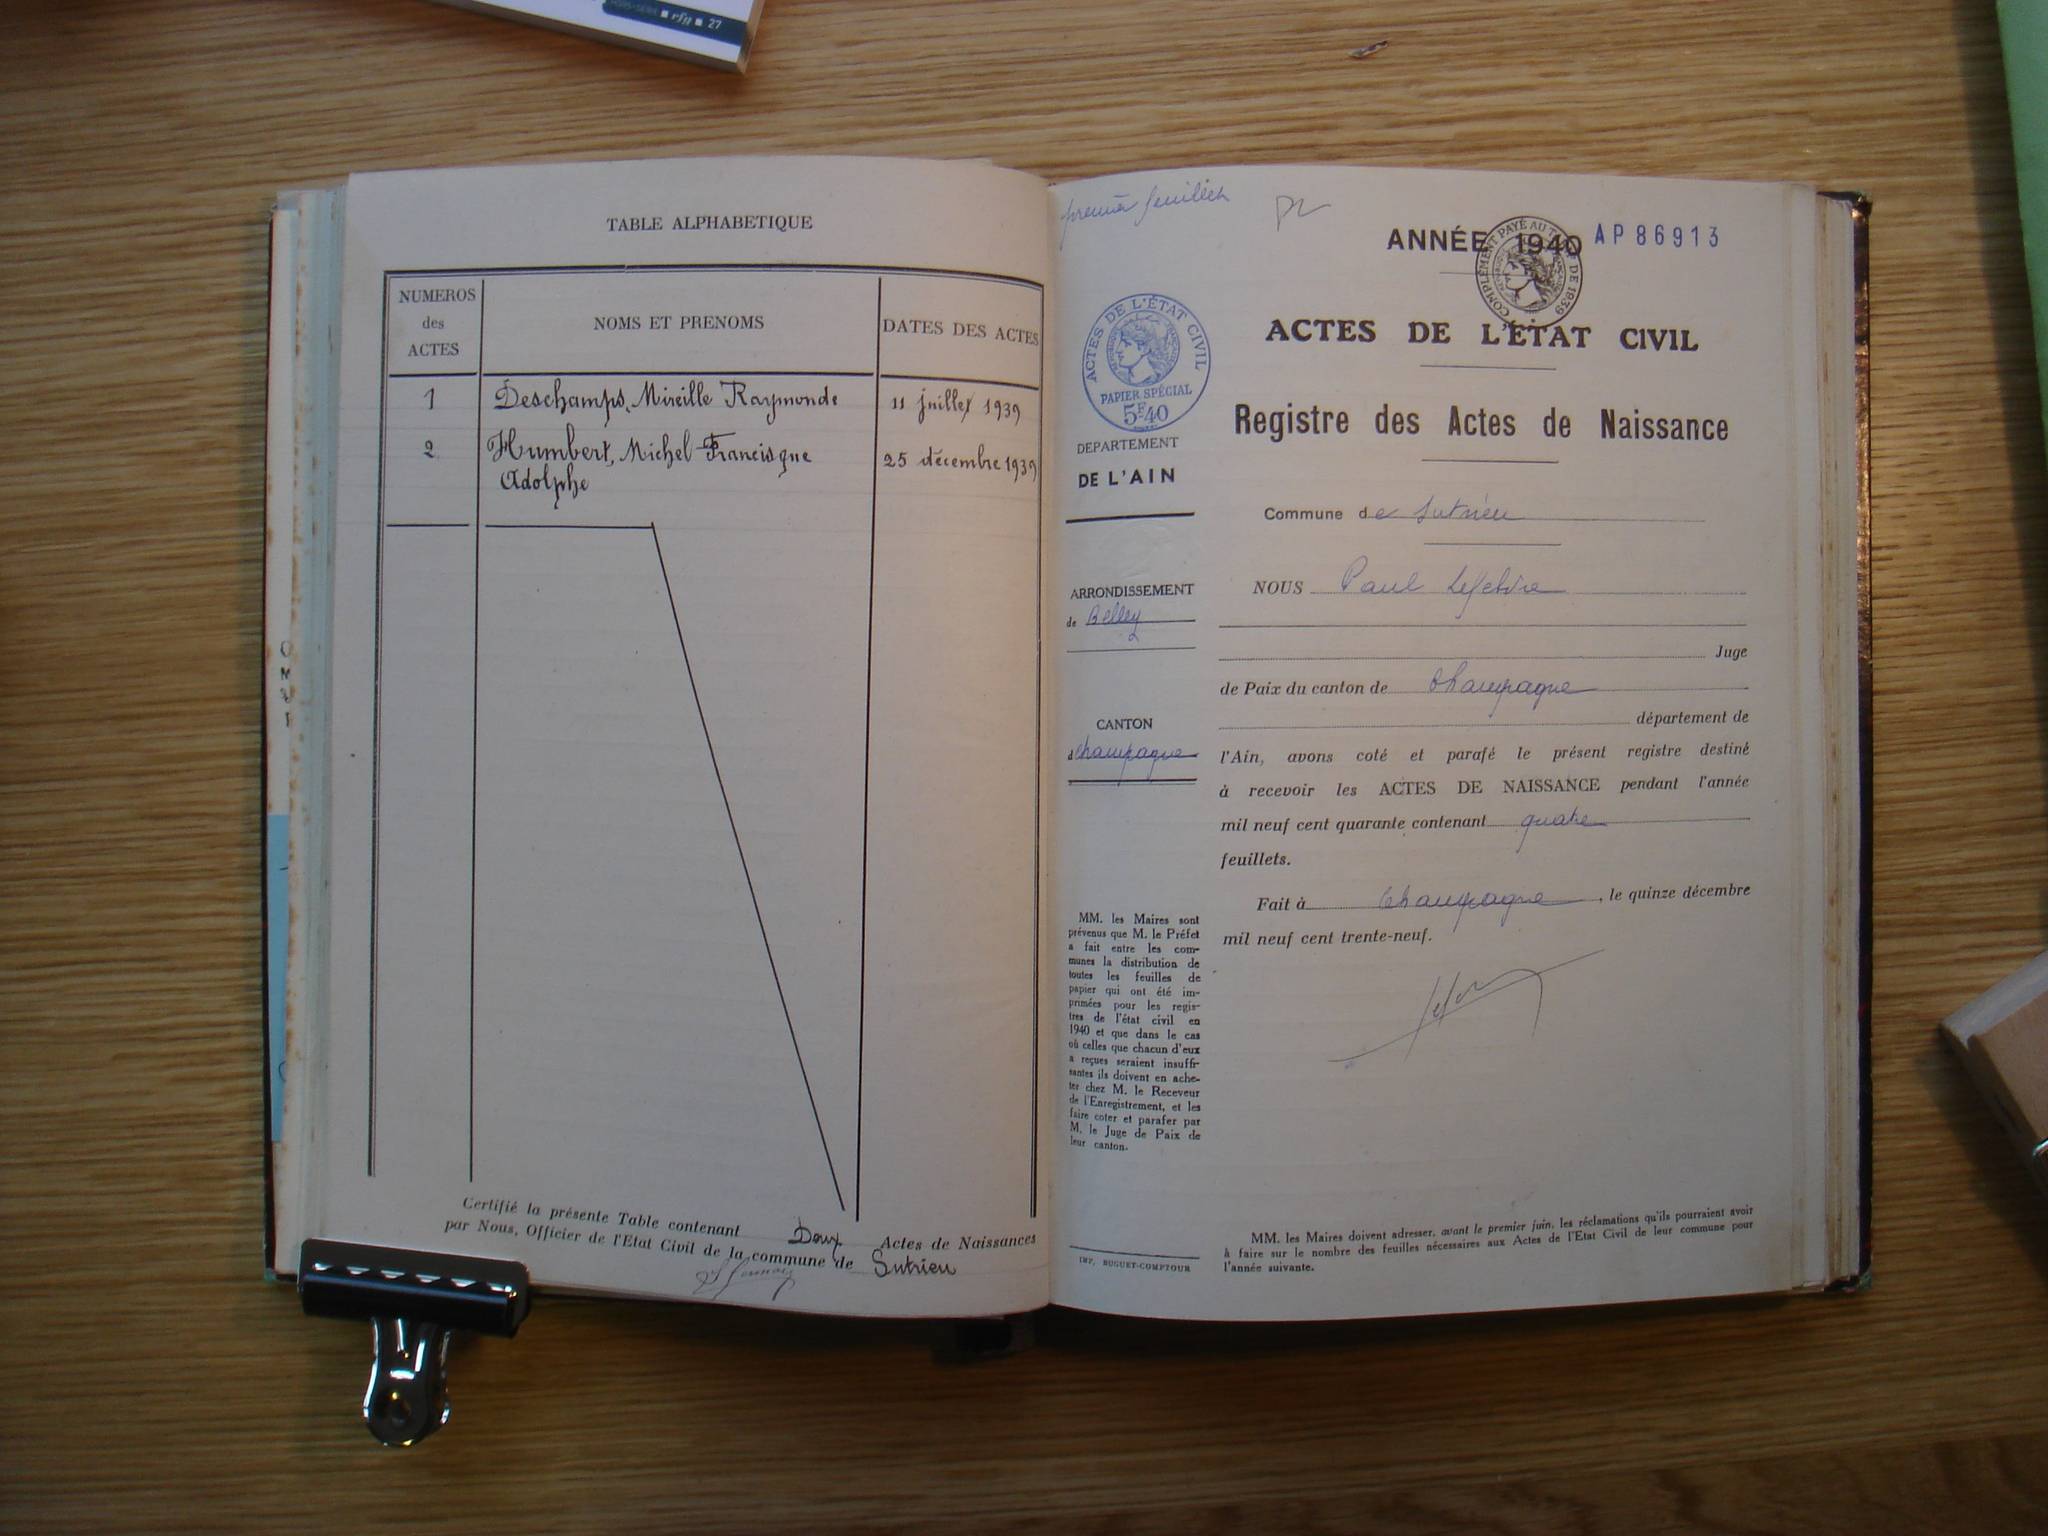 HORS-SÉRIE ■ rfg ■ 27
TABLE ALPHABETIQUE
NUMEROS
des
ACTES
NOMS ET PRENOMS
DATES DES ACTES
1 Deschamps, Mireille Raymonde 11 juillet 1939
2 Humbert, Michel Francisque 25 décembre 1939
Adolphe
Certifié la présente Table contenant Deux Actes de Naissances
par Nous, Officier de l'Etat Civil de la commune de Sutrieu
premier feuillet
ANNÉE 1940
AP 86913
COMPLÉMENT PAYÉ AU TARIF DE 1939
ACTES DE L'ÉTAT CIVIL
PAPIER SPÉCIAL
5F40
DEPARTEMENT
DE L'AIN
ARRONDISSEMENT
de Belley
CANTON
d Champagne
MM. les Maires sont
prévenus que M. le Préfet
a fait entre les com-
munes la distribution de
toutes les feuilles de
papier qui ont été im-
primées pour les regis-
tres de l'état civil en
1940 et que dans le cas
où celles que chacun d'eux
a reçues seraient insuffi-
santes ils doivent en ache-
ter chez M. le Receveur
de l'Enregistrement, et les
faire coter et parafer par
M. le Juge de Paix de
leur canton.
IMP. BUGUET-COMPTOUR
ACTES DE L'ÉTAT CIVIL
Registre des Actes de Naissance
Commune de Sutrieu
NOUS Paul Lefebvre
Juge
de Paix du canton de Champagne
département de
l'Ain, avons coté et parafé le présent registre destiné
à recevoir les ACTES DE NAISSANCE pendant l'année
mil neuf cent quarante contenant quatre
feuillets.
Fait à Champagne, le quinze décembre
mil neuf cent trente-neuf.
MM. les Maires doivent adresser, avant le premier juin, les réclamations qu'ils pourraient avoir
à faire sur le nombre des feuilles nécessaires aux Actes de l'Etat Civil de leur commune pour
l'année suivante.